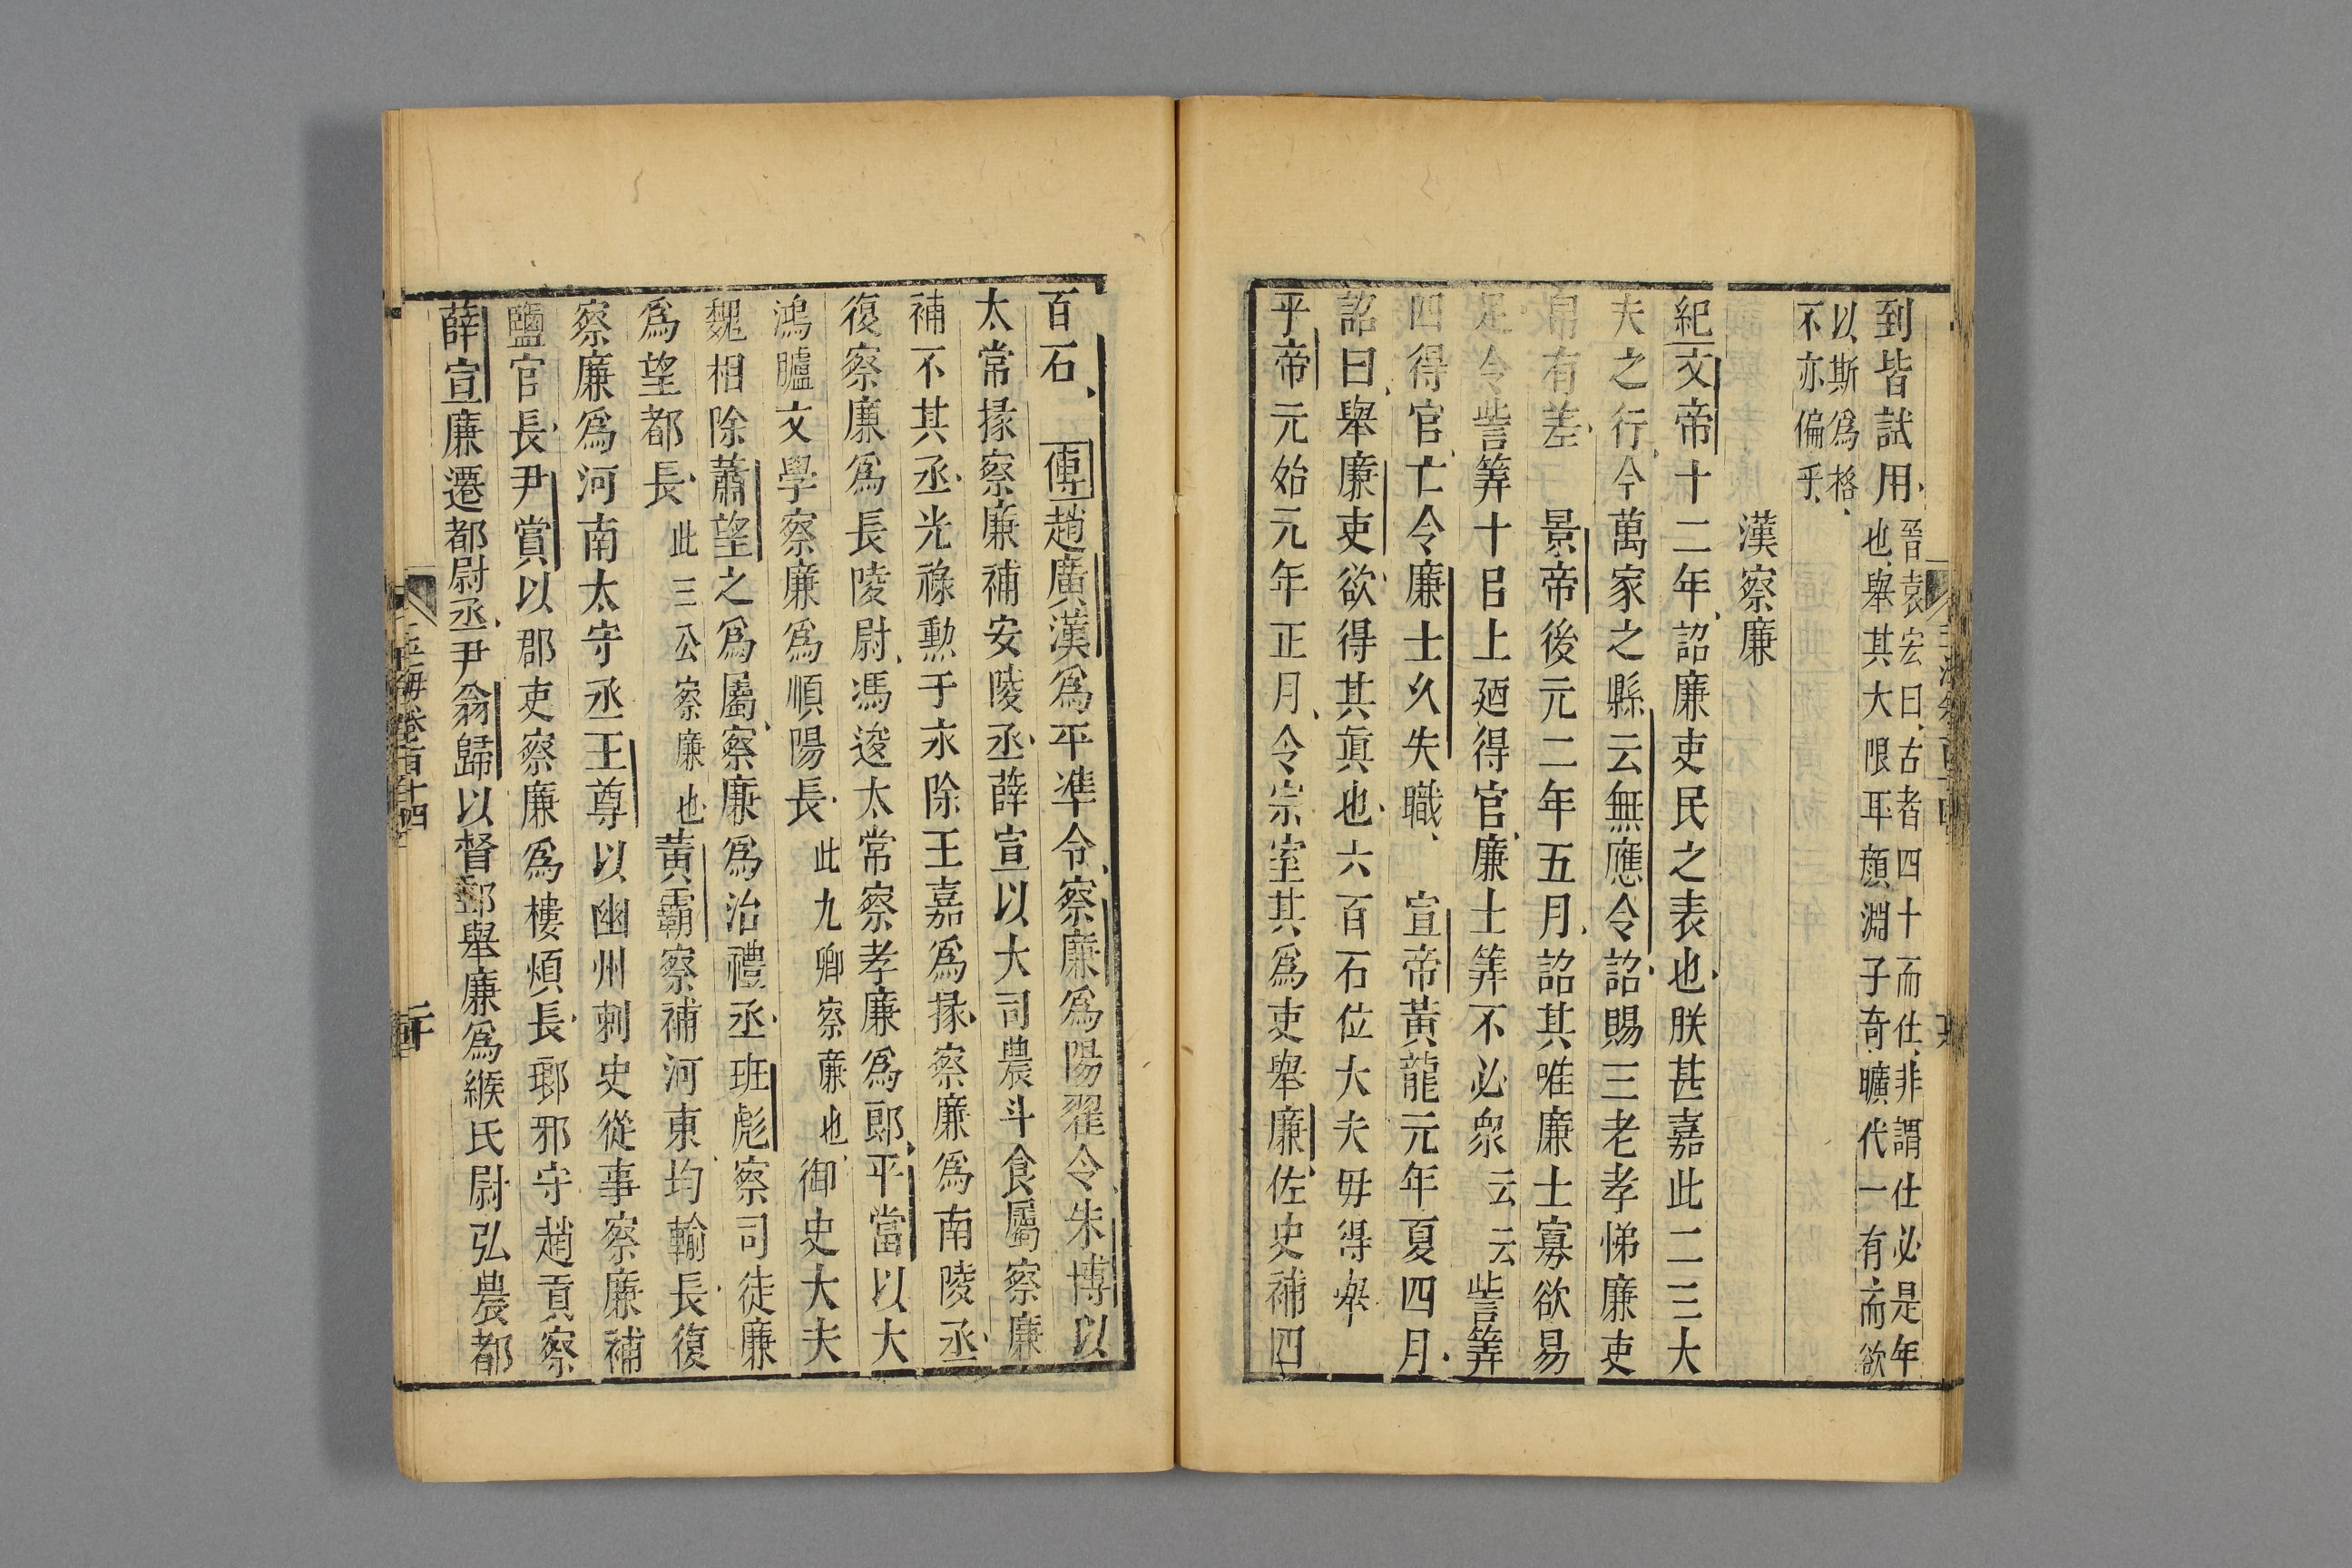 到皆試用晉袁宏曰古者四十而仕非謂仕必是年
也舉其大限耳顏淵子奇曠代一有而欲
以斯爲格
不亦偏乎
漢察廉
紀文帝十二年詔廉吏民之表也朕甚嘉此二三大
夫之行今萬家之縣云無應令詔賜三老孝悌廉吏
帛有差景帝後元二年五月詔其唯廉士寡欲易
足令訾筭十㠯上廼得官廉士筭不必衆云云訾筭
四得官亡令廉士久失職宣帝黃龍元年夏四月
詔曰舉廉吏欲得其眞也六百石位大夫毋得舉
平帝元始元年正月令宗室其爲吏舉廉佐史補四
百石傳趙廣漢爲平準令察廉爲陽翟令朱博以
太常掾察廉補安陵丞薛宣以大司農斗食屬察廉
補不其丞光祿勳于永除王嘉爲掾察廉爲南陵丞
復察廉爲長陵尉馮逡太常察孝廉爲郎平當以大
鴻臚文學察廉爲順陽長此九卿察廉也御史大夫
魏相除蕭望之爲屬察廉爲治禮丞班彪察司徒廉
爲望都長此三公察廉也黃霸察補河東均輸長復
察廉爲河南太守丞王尊以幽州刺史從事察廉補
鹽官長尹賞以郡吏察廉爲樓煩長瑯邪守趙貢察
薛宣廉遷都尉丞尹翁歸以督郵舉廉爲緱氏尉弘農都
玉海卷一百十四